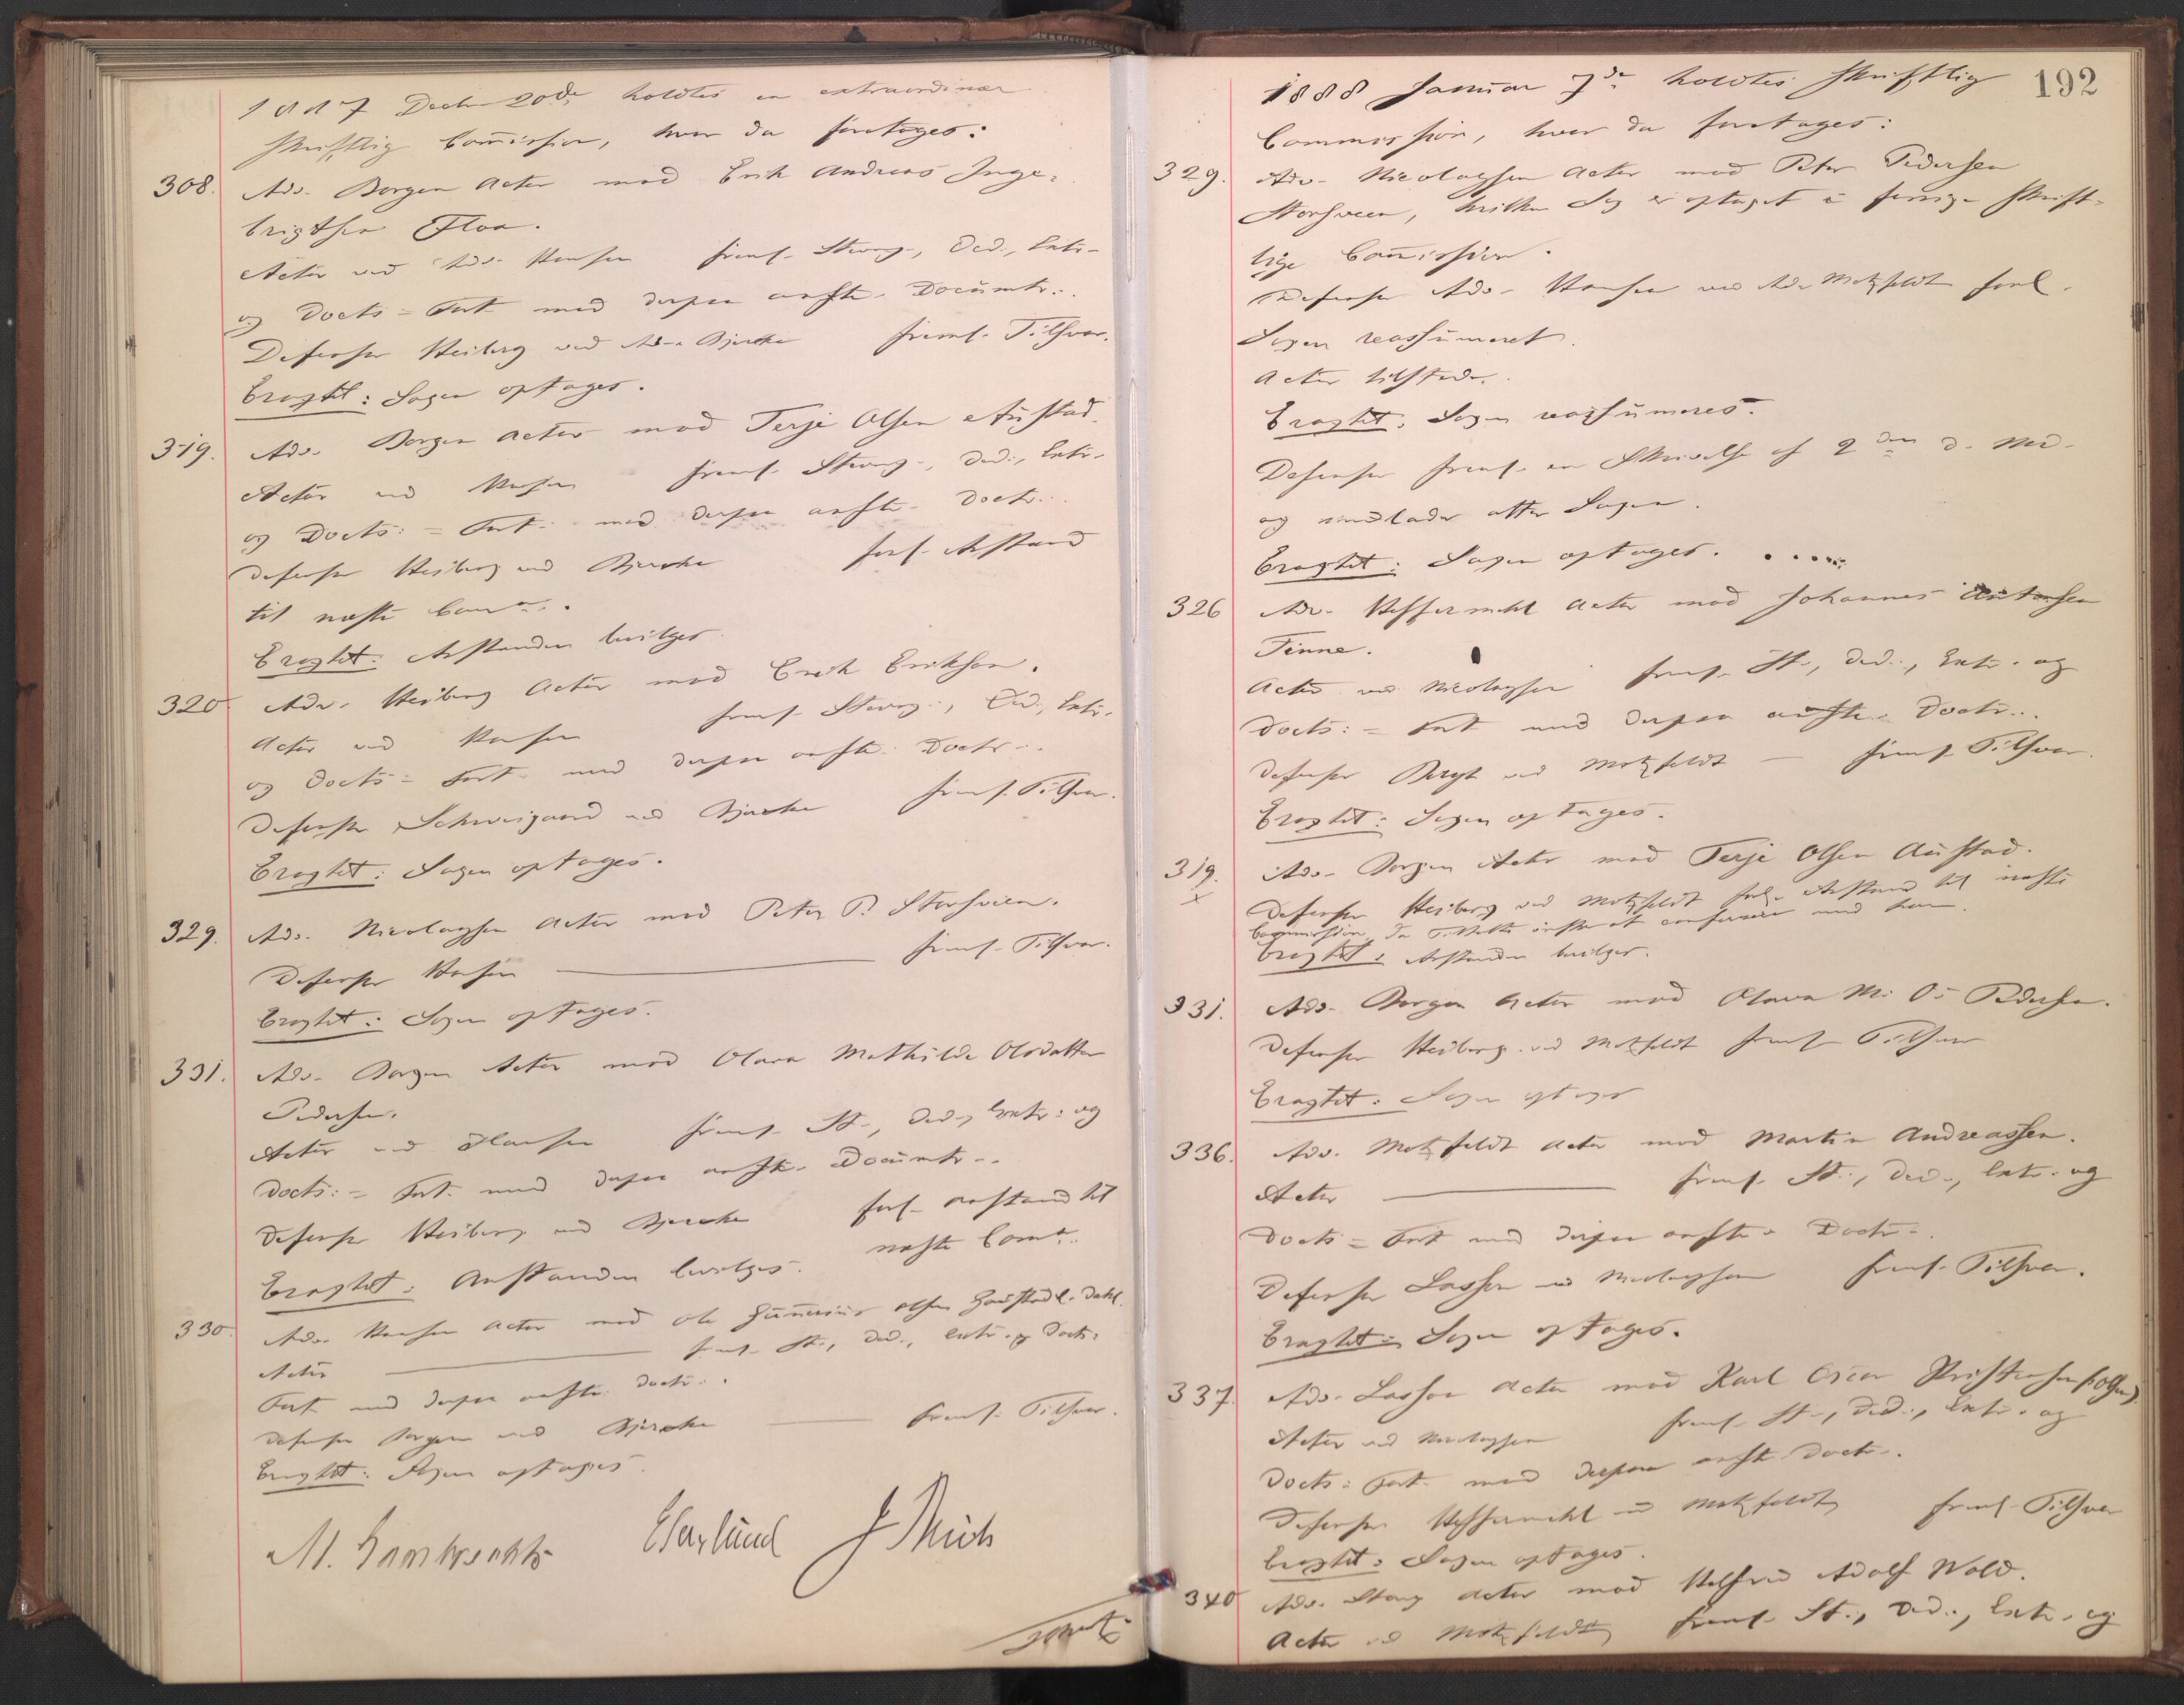 1887 Decbr 20de holdtes en extraordinær
skriftlig Com̄ission, hvor da foretoges:
308. Adv. Borgen Actor mod Erik Andreas Inge-
brigtsen Floa.
Actor ved Adv. Hansen freml. Stevng., Ded., Extr.
og Docts: = Fort. med derpaa anførte Documtr.
Defensor Heiberg ved Adv. Bjerke freml. Tilsvar.
Eragtet: Sagen optages.
319. Adv. Borgen Actor mod Terje Olsen Austad.
Actor ved Hansen freml. Stevng., Ded., Extr.
og Docts: = Fort. med derpaa anførte Doctr.
Defensor Heiberg ved Bjerke forl. Anstand
til næste Comn.
Eragtet: Anstanden bevilges
320. Adv. Heiberg Actor mod Erik Eriksen.
Actor ved Hansen freml. Stevng., Ded., Extr.
og Docts: = Fort. med derpaa anførte Doctr.
Defensor Schweigaard ved Bjerke freml. Tilsvar.
Eragtet: Sagen optages.
329. Adv. Nicolaysen Actor mod Peter P. Storsveen.
Defensor Hansen freml. Tilsvar.
Eragtet: Sagen optages.
331. Adv. Borgen Actor mod Olava Mathilde Olsdatter
Pedersen.
Actor ved Hansen freml. St., Ded., Extr. og
Docts: = Fort. med derpaa anførte Documtr.
Defensor Heiberg ved Bjerke forl. Anstand til
næste Comn.
Eragtet: Anstanden bevilges.
330. Adv. Hansen Actor mod Ole Gun̄erius Olsen Dahl.
Actor freml. St., Ded., Extr. og Docts:
Fort. med derpaa anførte Doctr.
Defensor Borgen ved Bjerke freml. Tilsvar.
Eragtet: Sagen optages.
M. Lambrechts E Berglund J Thiis
192
1888 Januar 7de holdtes skriftlig
Commission, hvor da foretoges:
329. Adv. Nicolaysen Actor mod Peter Pedersen
Storsveen, hvilken Sag er optaget i forrige skrift-
lige Com̄ission.
Defensor Adv. Hansen ved Adv. Motzfeldt forl.
Sagen reassumeret.
Actor tilstede.
Eragtet: Sagen reassumeres.
Defensor freml. en Skrivelse af 2den d. Md.
og indlader atter Sagen.
Eragtet: Sagen optages.
326 Adv. Heffermehl Actor mod Johannes Antonsen
Finne.
Actor ved Nicolaysen freml. St., Ded., Extr. og
Docts: = Fort. med derpaa anførte Doctr.
Defensor Bergh ved Motzfeldt freml. Tilsvar.
Eragtet: Sagen optages.
319. Adv. Borgen Actor mod Terje Olsen Austad.
x Defensor Heiberg ved Motzfeldt forl. Anstand til næste
Commission, da Tiltalte ønsker at conferere med ham.
Eragtet: Anstanden bevilges.
331. Adv. Borgen Actor mod Olava M. O. Pedersen.
Defensor Heiberg ved Motzfeldt freml Tilsvar
Eragtet: Sagen optages
336. Adv. Motzfeldt Actor mod Martin Andreassen.
Actor freml. St., Ded., Extr. og
Docts = Fort. med derpaa anførte Doctr.
Defensor Lasson ved Nicolaysen freml. Tilsvar.
Eragtet: Sagen optages.
337. Adv. Lasson Actor mod Karl Oscar Kristensen (Olsen)
Actor ved Nicolaysen freml. St., Ded., Extr. og
Docts: Fort. med derpaa anførte Doctr.
Defensor Heffermehl ved Motzfeldt freml. Tilsvar
Eragtet: Sagen optages.
340 Adv. Stang Actor mod Helfred Adolf Wold.
Actor ved Motzfeldt freml. St., Ded., Extr. og